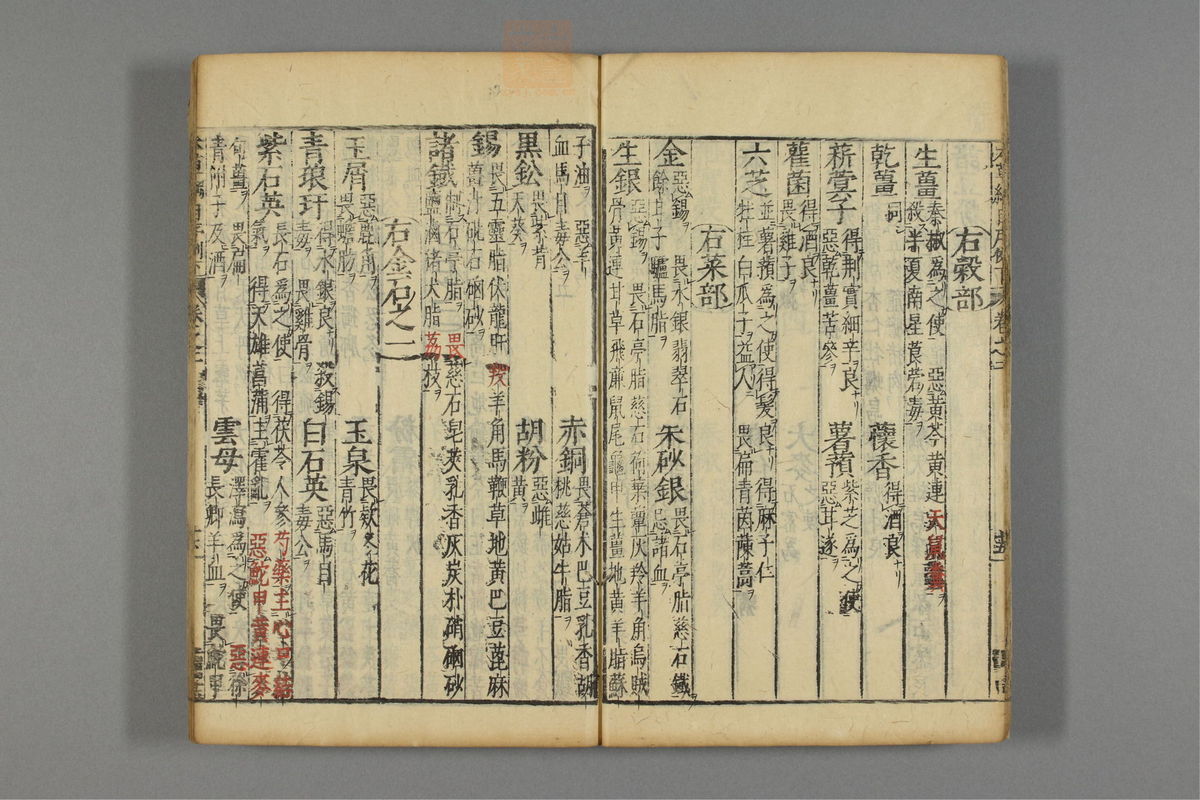 右穀部
生薑 秦椒為之使 惡黃芩黃連天鼠糞
殺半夏南星莨菪毒
乾薑 同 蘹香 得酒良
菥蓂子 得荊實細辛良
惡乾薑苦參
薯蕷 紫芝為之使
惡甘遂
雚菌 得酒良
畏雞子
六芝 並薯蕷為之使得髮良得麻子仁
牡桂白瓜子益人畏扁青茵蔯蒿
右菜部
金 惡錫 畏水銀翡翠石
餘甘子驢馬脂
朱砂銀 畏石亭脂慈石鐵
忌諸血
生銀 惡錫 畏石亭脂慈石荷葉蕈灰羚羊角烏賊
骨黃連甘草飛廉鼠尾龜甲生薑地黃羊脂蘇
子油 惡羊
血馬目毒公
赤銅 畏蒼朮巴豆乳香胡
桃慈姑牛脂
黒鈆 畏紫背
天葵
胡粉 惡雌
黃
錫 畏五靈脂伏龍肝羖羊角馬鞭草地黃巴豆蓖麻
薑汁砒石硇砂
諸鐵 制石亭脂畏慈石皂莢乳香灰炭朴硝硇砂
鹽鹵猪犬脂荔枝
右金石之一
玉屑 惡鹿角
畏蟾肪
玉泉 畏欵冬花
青竹
青琅玕 得水銀良 畏雞骨 殺錫
毒
白石英 惡馬目
毒公
紫石英 長石為之使 得茯苓人參芍藥主心中結
氣 得天雄菖蒲主霍亂 惡鮀甲黃連麥
句薑 畏扁
青附子及酒
雲母 澤瀉為之使 惡徐
長卿羊血 畏鮀甲